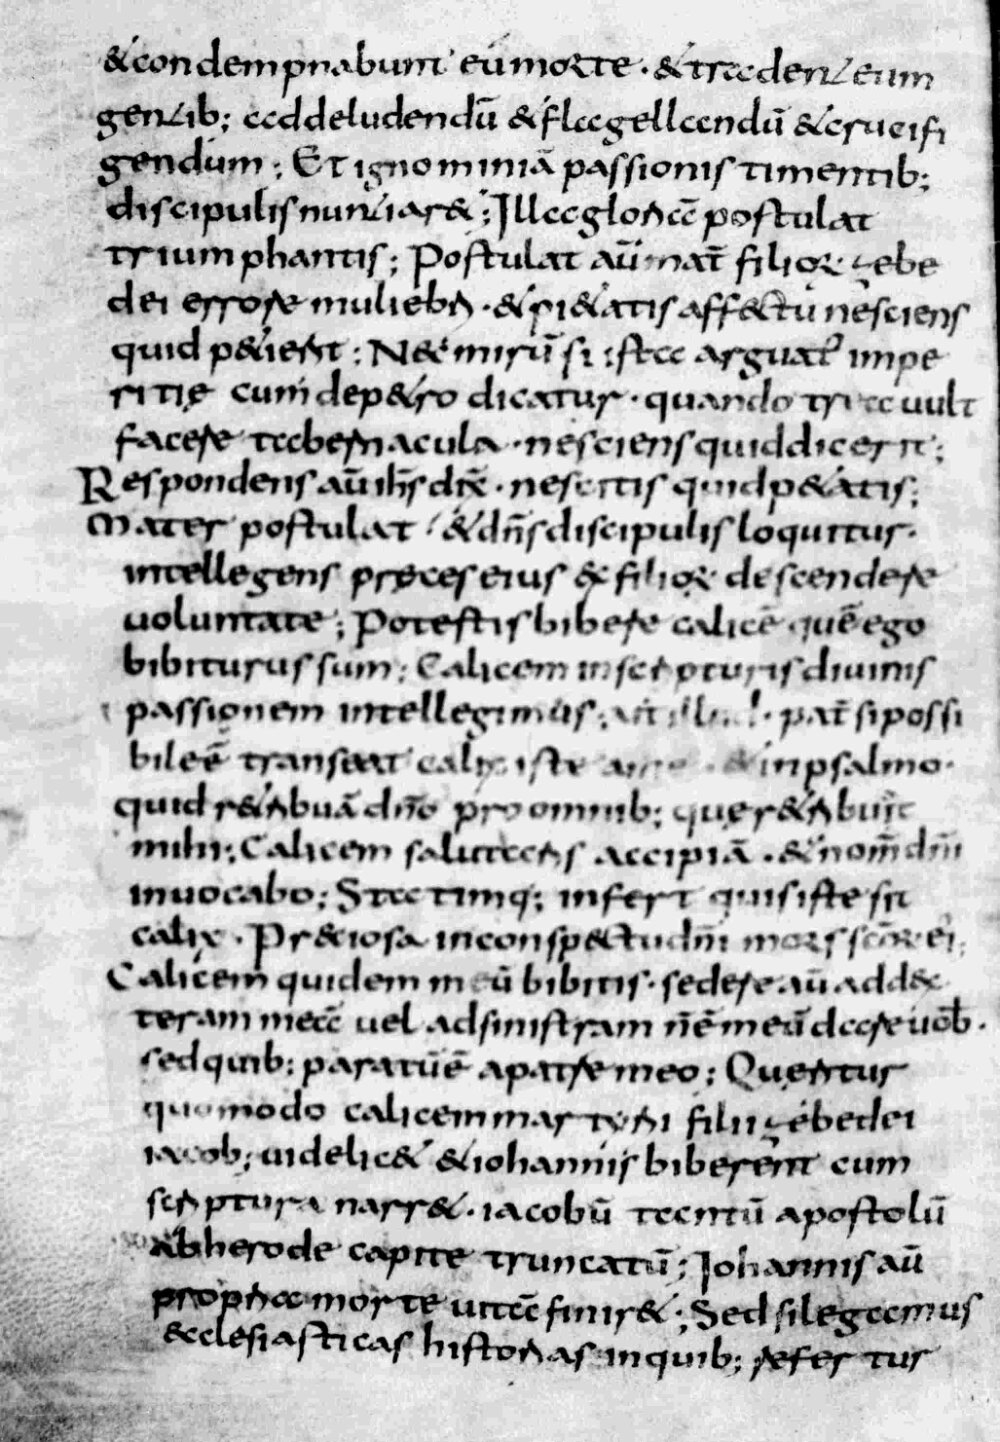 &condempnabunt eū morte · & tradent eum
gentib; ad deludendū & flagellandū & crucifi
gendum ; Et ignominiā passionis timentib;
discipulis nuntiar& ; Illa gloriā postulat
triumphantis ; Postulat aū mat̄ filioꝝ zebe
dei errore muliebri · & pi&atis affectu nesciens
quid p&ier̄t ; Nec mirū si ista arguat᷑ impe
ritię cum de p&ro dicatur · quando tria uult
facere tabernacula · nesciens quid dicer&;
Respondens aū ih̄s dix̄ · nescitis quid p&atis;
Mater postulat · & dn̄s discipulis loquitur ·
intellegens pręces eius & filioꝝ descendere
uoluntate ; Potestis bibere calicē quē ego
bibiturus sum ; Calicem in scripturis diuinis
passionem intellegimus ; ut illud · pat̄ si possi
bile ē transeat calix iste a me · & in psalmo ·
quid r&ribuā dn̄o pro omnib; quę r&ribuit
mihi ; Calicem salutaris accipiā · & nom̄ dn̄i
inuocabo ; Statimq; infert quis iste sit
calix · Pr&iosa in conspectu dn̄i mors sc̄oꝝ ei;
Calicem quidem meū bibitis · sedere aū ad dex
teram meā uel ad sinistram n̄ ē meū dare uob̄ ·
sed quib; paratū ē a patre meo ; Queritur
quomodo calicem martyrii filii zebedei
iacob; uidelic& & iohannis biberent cum
scriptura narr& · iacobū tantū apostolū
ab herode capite truncatū ; Johannis aū
propria morte uitā finir& ; Sed si legamus
&cclesiasticas historias in quib; refertur